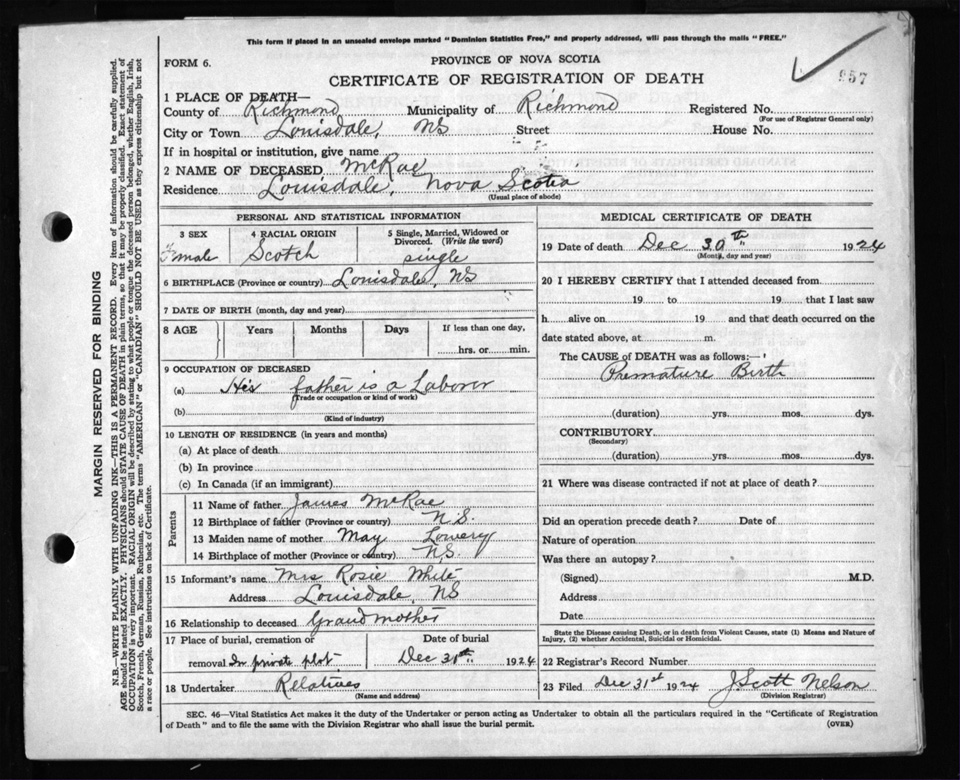 This form if placed in an unsealed envelope marked "Dominion Statistics Free," and properly addressed, will pass through the mails "FREE."
FORM 6.
PROVINCE OF NOVA SCOTIA
CERTIFICATE OF REGISTRATION OF DEATH
957
1 PLACE OF DEATH—
County of Richmond Municipality of Richmond Registered No.
(For use of Registrar General only)
City or Town Louisdale, NS Street House No.
If in hospital or institution, give name
2 NAME OF DECEASED McRae
Residence Louisdale, Nova Scotia
(Usual place of abode)
PERSONAL AND STATISTICAL INFORMATION
3 SEX 4 RACIAL ORIGIN 5 Single, Married, Widowed or Divorced. (Write the word)
Female Scotch single
6 BIRTHPLACE (Province or country) Louisdale, NS
7 DATE OF BIRTH (month, day and year)
8 AGE Years Months Days If less than one day,
hrs. or min.
9 OCCUPATION OF DECEASED
(a) His father is a Laborer
(Trade or occupation or kind of work)
(b)
(Kind of industry)
10 LENGTH OF RESIDENCE (in years and months)
(a) At place of death
(b) In province
(c) In Canada (if an immigrant)
Parents
11 Name of father James McRae
12 Birthplace of father (Province or country) N.S.
13 Maiden name of mother May Lowery
14 Birthplace of mother (Province or country) N.S.
15 Informant's name Mrs Rosie White
Address Louisdale, NS
16 Relationship to deceased Grandmother
17 Place of burial, cremation or Date of burial
removal In private plot Dec 31st 1924
18 Undertaker Relatives
(Name and address)
MEDICAL CERTIFICATE OF DEATH
19 Date of death Dec 30th 1924
(Month, day and year)
20 I HEREBY CERTIFY that I attended deceased from
19 to 19 that I last saw
h alive on 19 and that death occurred on the
date stated above, at m.
The CAUSE OF DEATH was as follows:—
Premature Birth
(duration) yrs. mos. dys.
CONTRIBUTORY
(Secondary)
(duration) yrs. mos. dys.
21 Where was disease contracted if not at place of death?
Did an operation precede death? Date of
Nature of operation
Was there an autopsy?
(Signed) M.D.
Address
Date
State the Disease causing Death, or in death from Violent Causes, state (1) Means and Nature of
Injury, (2) whether Accidental, Suicidal or Homicidal.
22 Registrar's Record Number
23 Filed Dec 31st 1924 J. Scott Nelson
(Division Registrar)
SEC. 46—Vital Statistics Act makes it the duty of the Undertaker or person acting as Undertaker to obtain all the particulars required in the "Certificate of Registration
of Death" and to file the same with the Division Registrar who shall issue the burial permit.
(OVER)
MARGIN RESERVED FOR BINDING
N.B.—WRITE PLAINLY WITH UNFADING INK—THIS IS A PERMANENT RECORD. Every item of information should be carefully supplied.
AGE should be stated EXACTLY. PHYSICIANS should STATE CAUSE OF DEATH in plain terms, so that it may be properly classified. Exact statement of
OCCUPATION is very important. RACIAL ORIGIN will be described by stating to what people or tongue the deceased person belonged, whether English, Irish,
Scotch, French, German, Russian, Ruthenian, etc. The terms "AMERICAN" or "CANADIAN" SHOULD NOT BE USED as they express citizenship but not
a race or people. See instructions on back of Certificate.